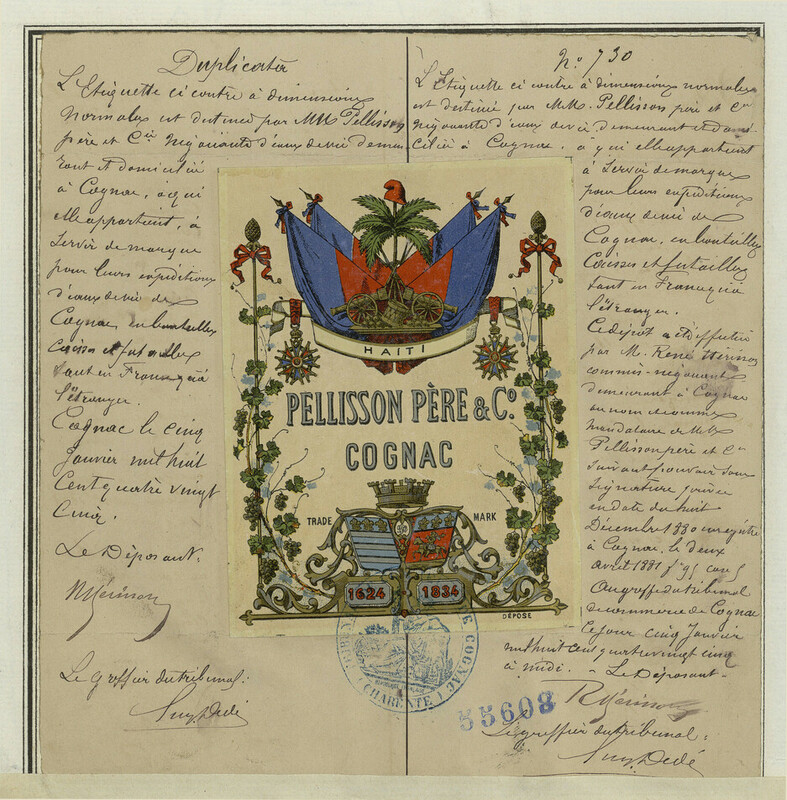 Duplicata
L'Etiquette ci contre à dimensions
normales est destinée par MM Pellisson
père et Cie Négociants d'eaux devie demeu
rant et domicilié
à Cognac, a qui
elle appartient, à
Servir de marque
pour leurs expéditions
d'eaux de vie de
Cognac, en bouteilles
Caisses et futailles
tant en France qu'à
l'étranger.
Cognac le cinq
Janvier mil huit
Cent quatre vingt
Cinq.
Le Déposant:
Le Greffier du tribunal:
No 730
L'Etiquette ci contre à dimensions normales
est destinée par MM. Pellisson père et Cie
Négociants d'eaux devie demeurant et domi-
ciliés à Cognac, a qui elle appartient
à Servir de marque
pour leurs expéditions
d'eaux de vie de
Cognac, en bouteilles
Caisses et futailles
tant en France qu'à
l'étranger.
Ce dépot a été effectué
par M. René
commis-négociant
demeurant à Cognac
au nom et comme
mandataire de MM
Pellisson père et Cie
Suivant pouvoir sous
Signature privée
en date du huit
Décembre 1880 enregistré
à Cognac, le deux
Avril 1881 fo 95
Au greffe du tribunal
de commerce de Cognac
le jour cinq Janvier
mil huit cent quatre vingt cinq
à midi. - Le Déposant-
Le greffier du tribunal:
HAITI
PELLISSON PÈRE & Co.
COGNAC
TRADE MARK
1624 1834
DÉPOSÉ
DE COGNAC
(CHARENTE)
55608